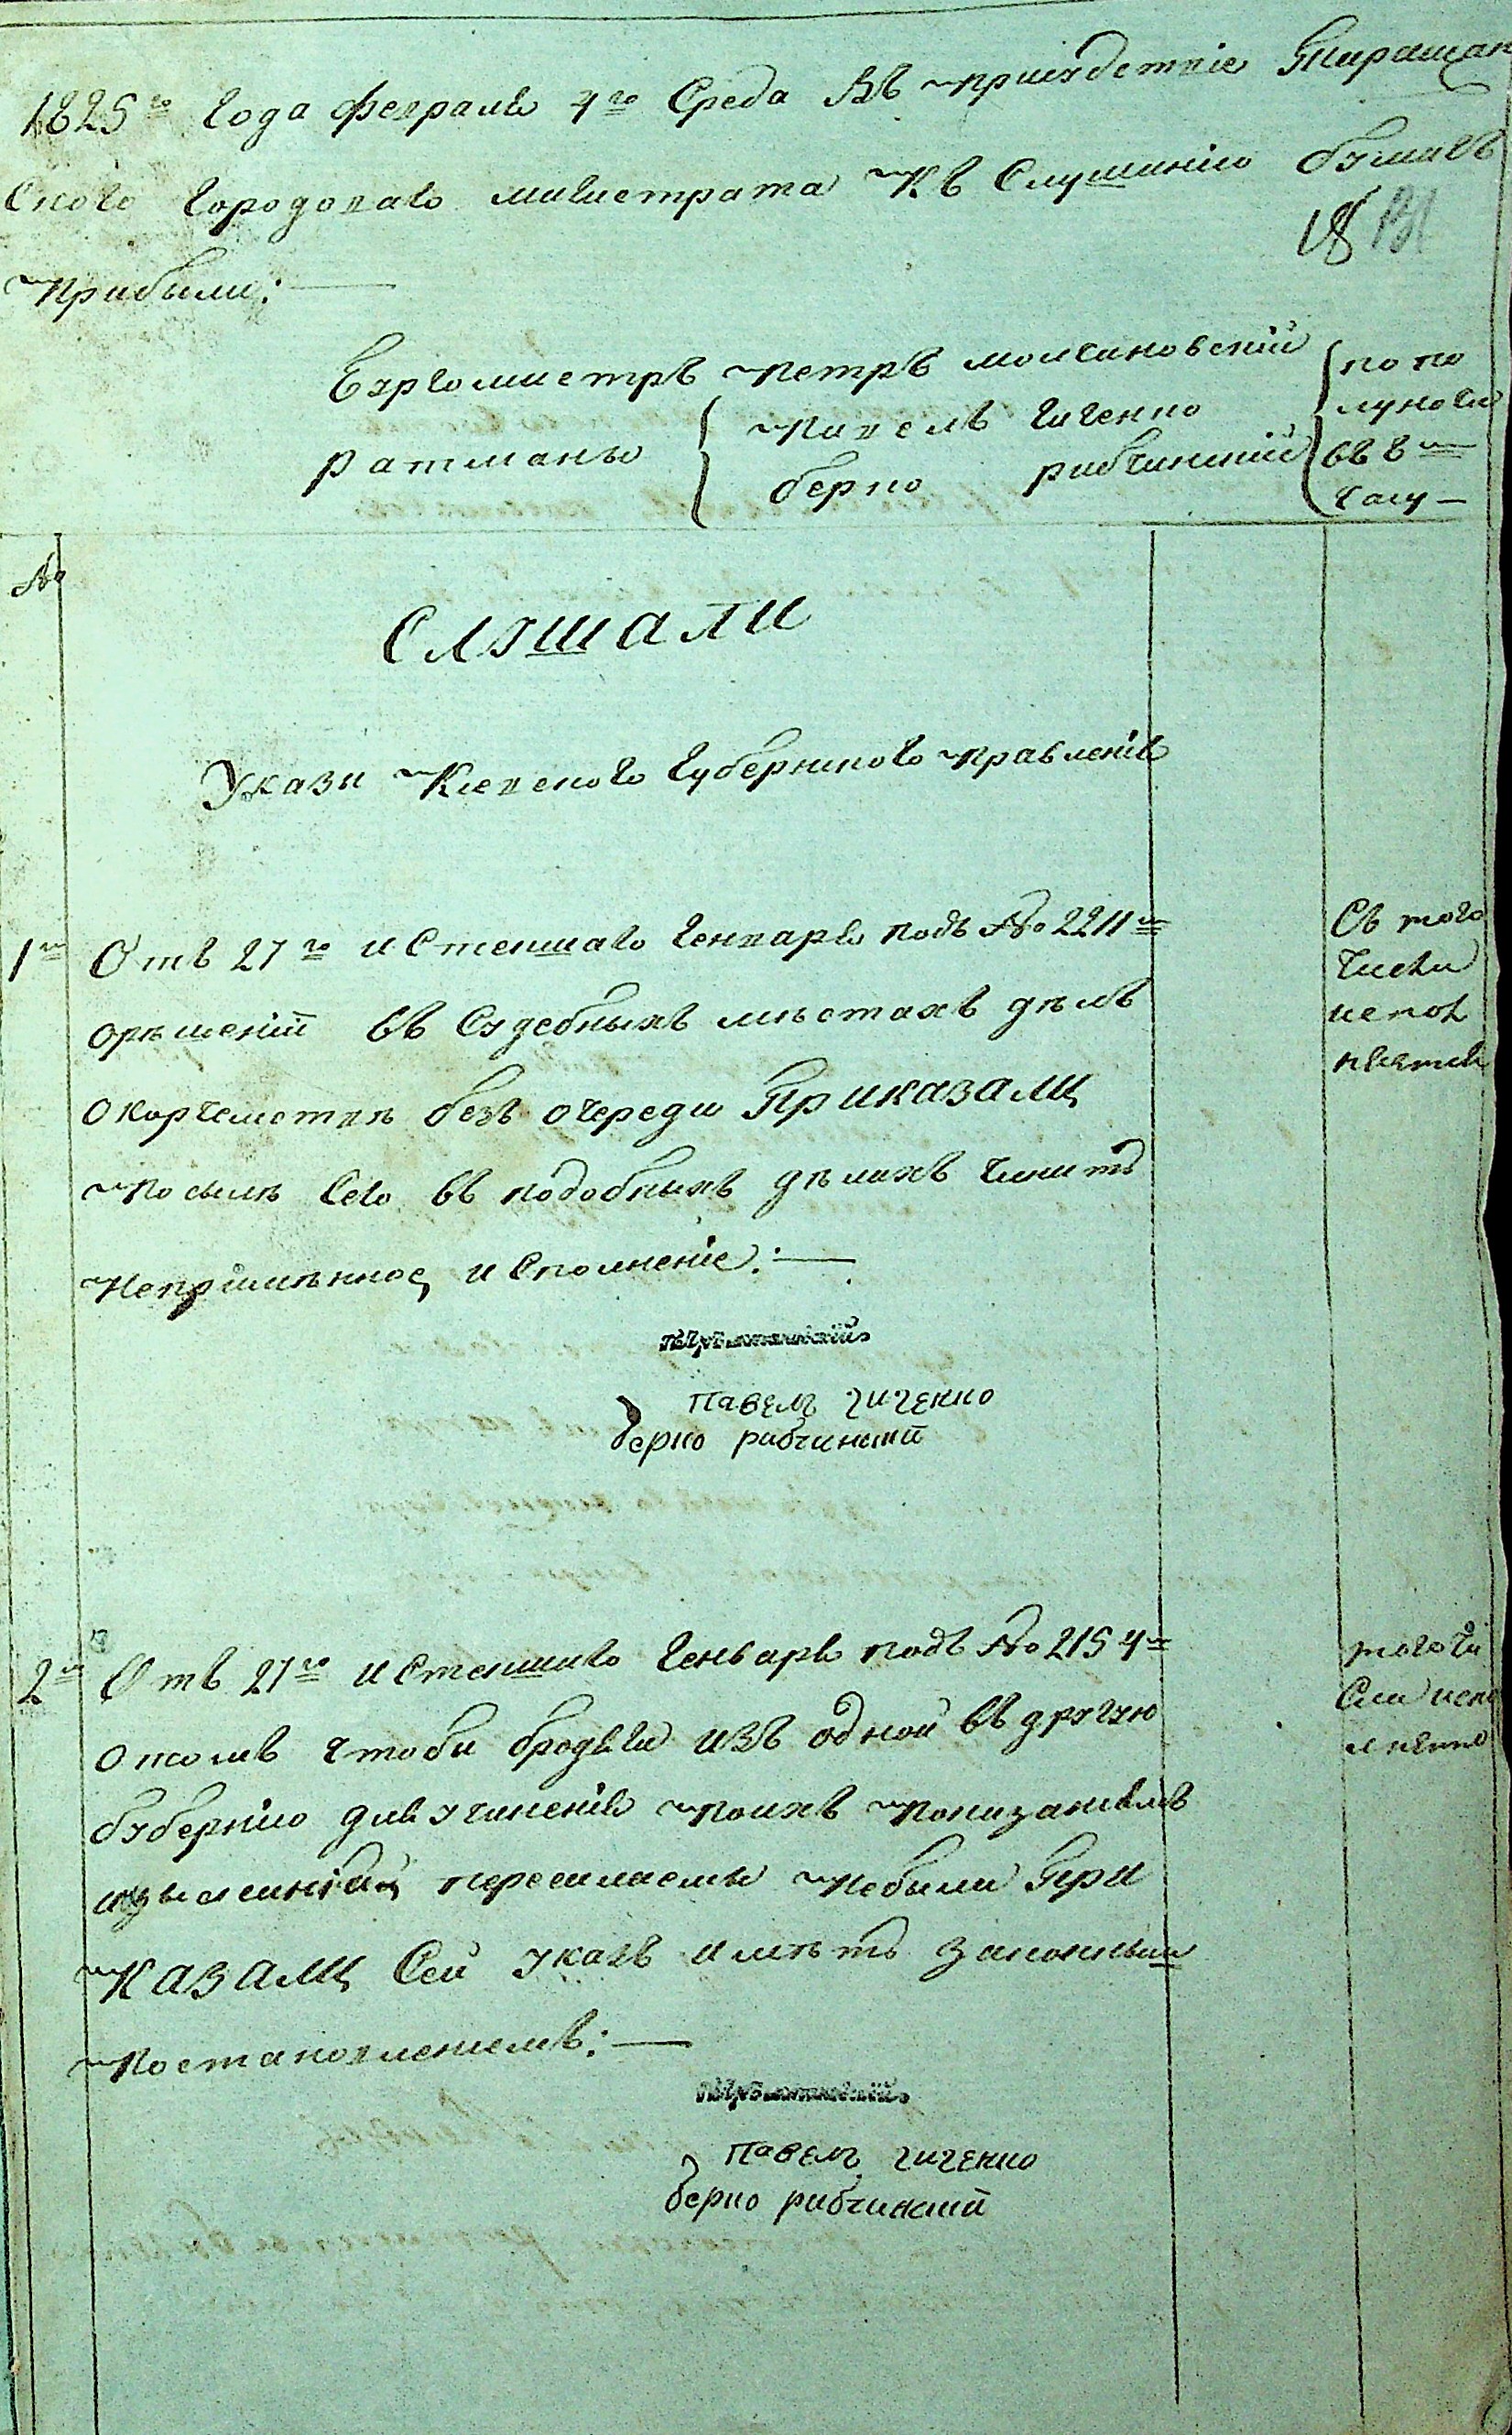 1825го года февраля 4го Среда Въ присудствіе Таращан
ского городоваго магистрата Къ Слушанію бумагъ
18
прибыли:
Бургомистръ Петръ молчановскій
ратманы
Павелъ чиченко
берко рабчинский
по по
луночи
въ 8м
часу
№
Слушали
Указы Кіевского Губернского правленія
1й Отъ 27го истекшаго Генваря подъ № 2211м
орѣшеній въ Судебныхъ мѣстахъ дѣлъ
окорчемствѣ безъ очереди Приказали
по силѣ сего въ подобныхъ дѣлахъ чинить
Непрѣмѣнное исполненіе:
Съ того
числа
испол
няется
Павелъ чиченко
берко рабчинский
2й Отъ 27го истекшаго Генваря подъ № 2154м
отомъ чтобы бродяги изъ одной въ другую
Губернію для учиненія поихъ показаніямъ
пересылаемы Небыли При
казали Сей указъ имѣть законнымъ
Постановленіемъ:
того чи
сла испо
лнено
Павелъ чиченко
берко рабчинский